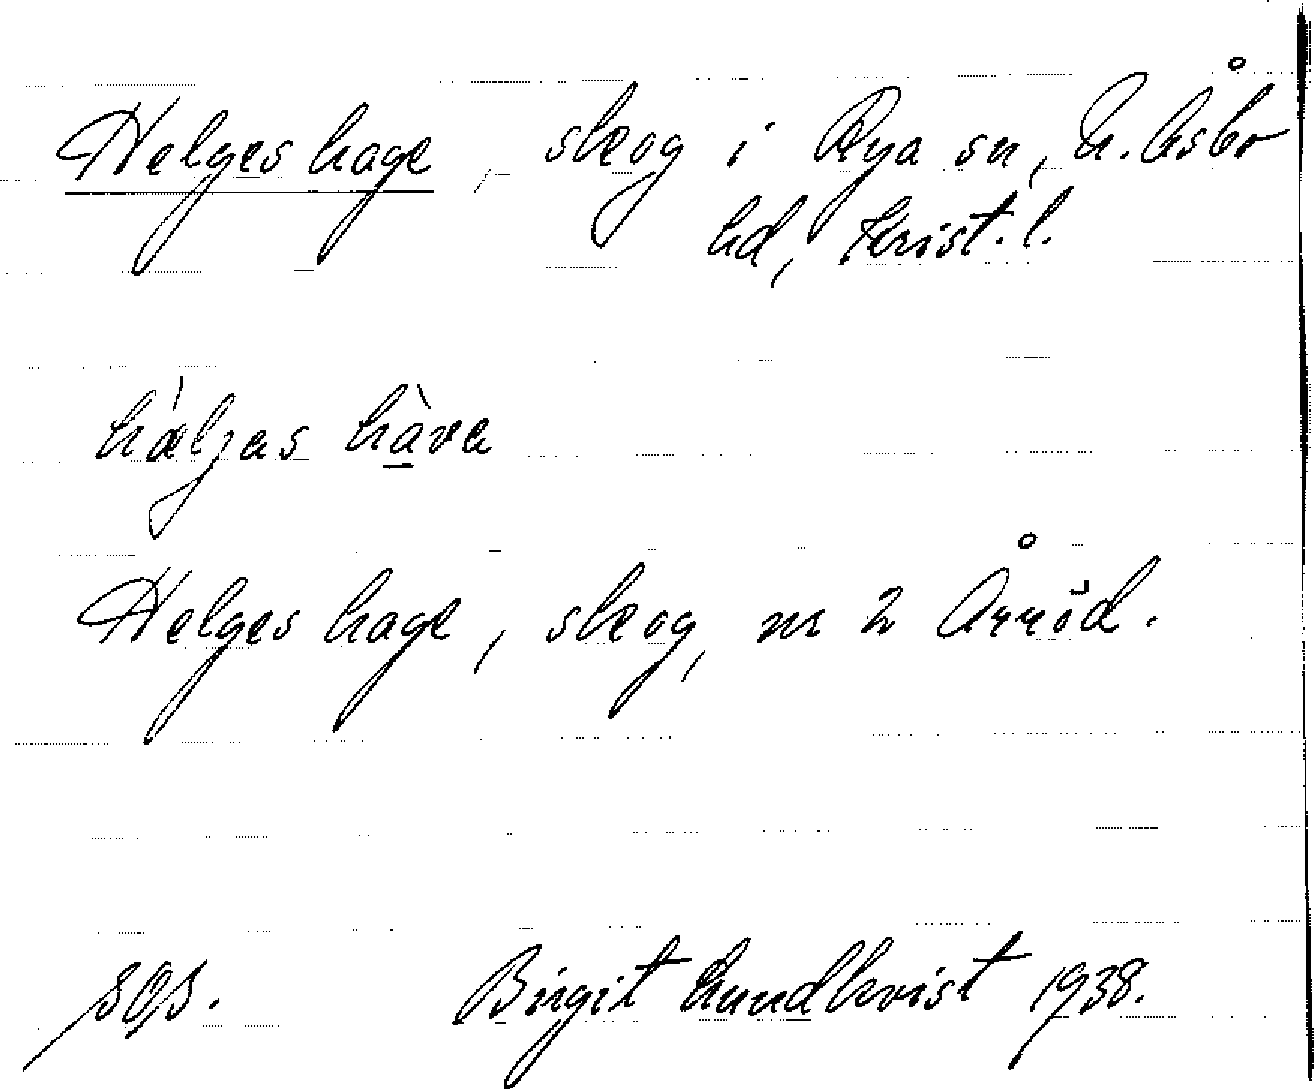 Helges hage, skog i Rya sn, N. Åsbo
hd, Krist. l.
hæljas hava
Helges hage, skog, nr 2 Årröd.
Birgit Lundkvist 1938.